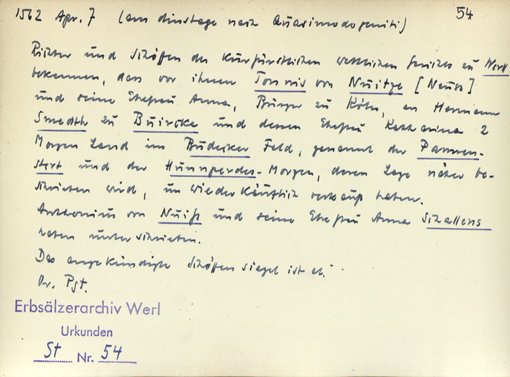 1562 Apr. 7 (am dinstage nach Quasimodogeniti) 54
Richter und Schöffen des Kurfürstlichen weltlichen Gerichts zu Werl
bekennen, dass vor ihnen Tonnis von Nuitze [Neuss]
und seine Ehefrau Anna, Bürger zu Köln, an Hermann
Smedth zu Buircke und dessen Ehefrau Katharina 2
Morgen Land im Büdeiker Feld, genannt der Pannen-
stert und der Hunnperdes-Morgen, deren Lage näher be-
schrieben wird, unwiederkäuflich verkauft haben.
Anthonius von Nuiß und seine Ehefrau Anna Schallens
haben unterschrieben.
Das angekündigte Schöffensiegel ist ab.
Or. Pgt.
Erbsälzerarchiv Werl
Urkunden
St Nr. 54